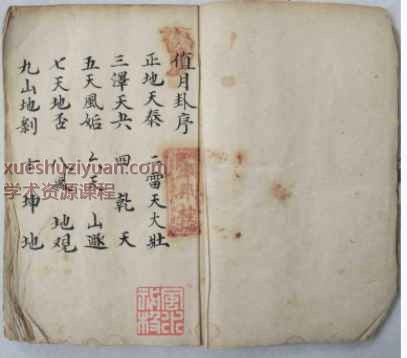 值月卦序
正地天泰 二雷天大壯
三澤天夬 四乾天
五天風姤 六天山遯
七天地否 八風地观
九山地剝 十坤地
xueshuziyuan.com
学术资源课程